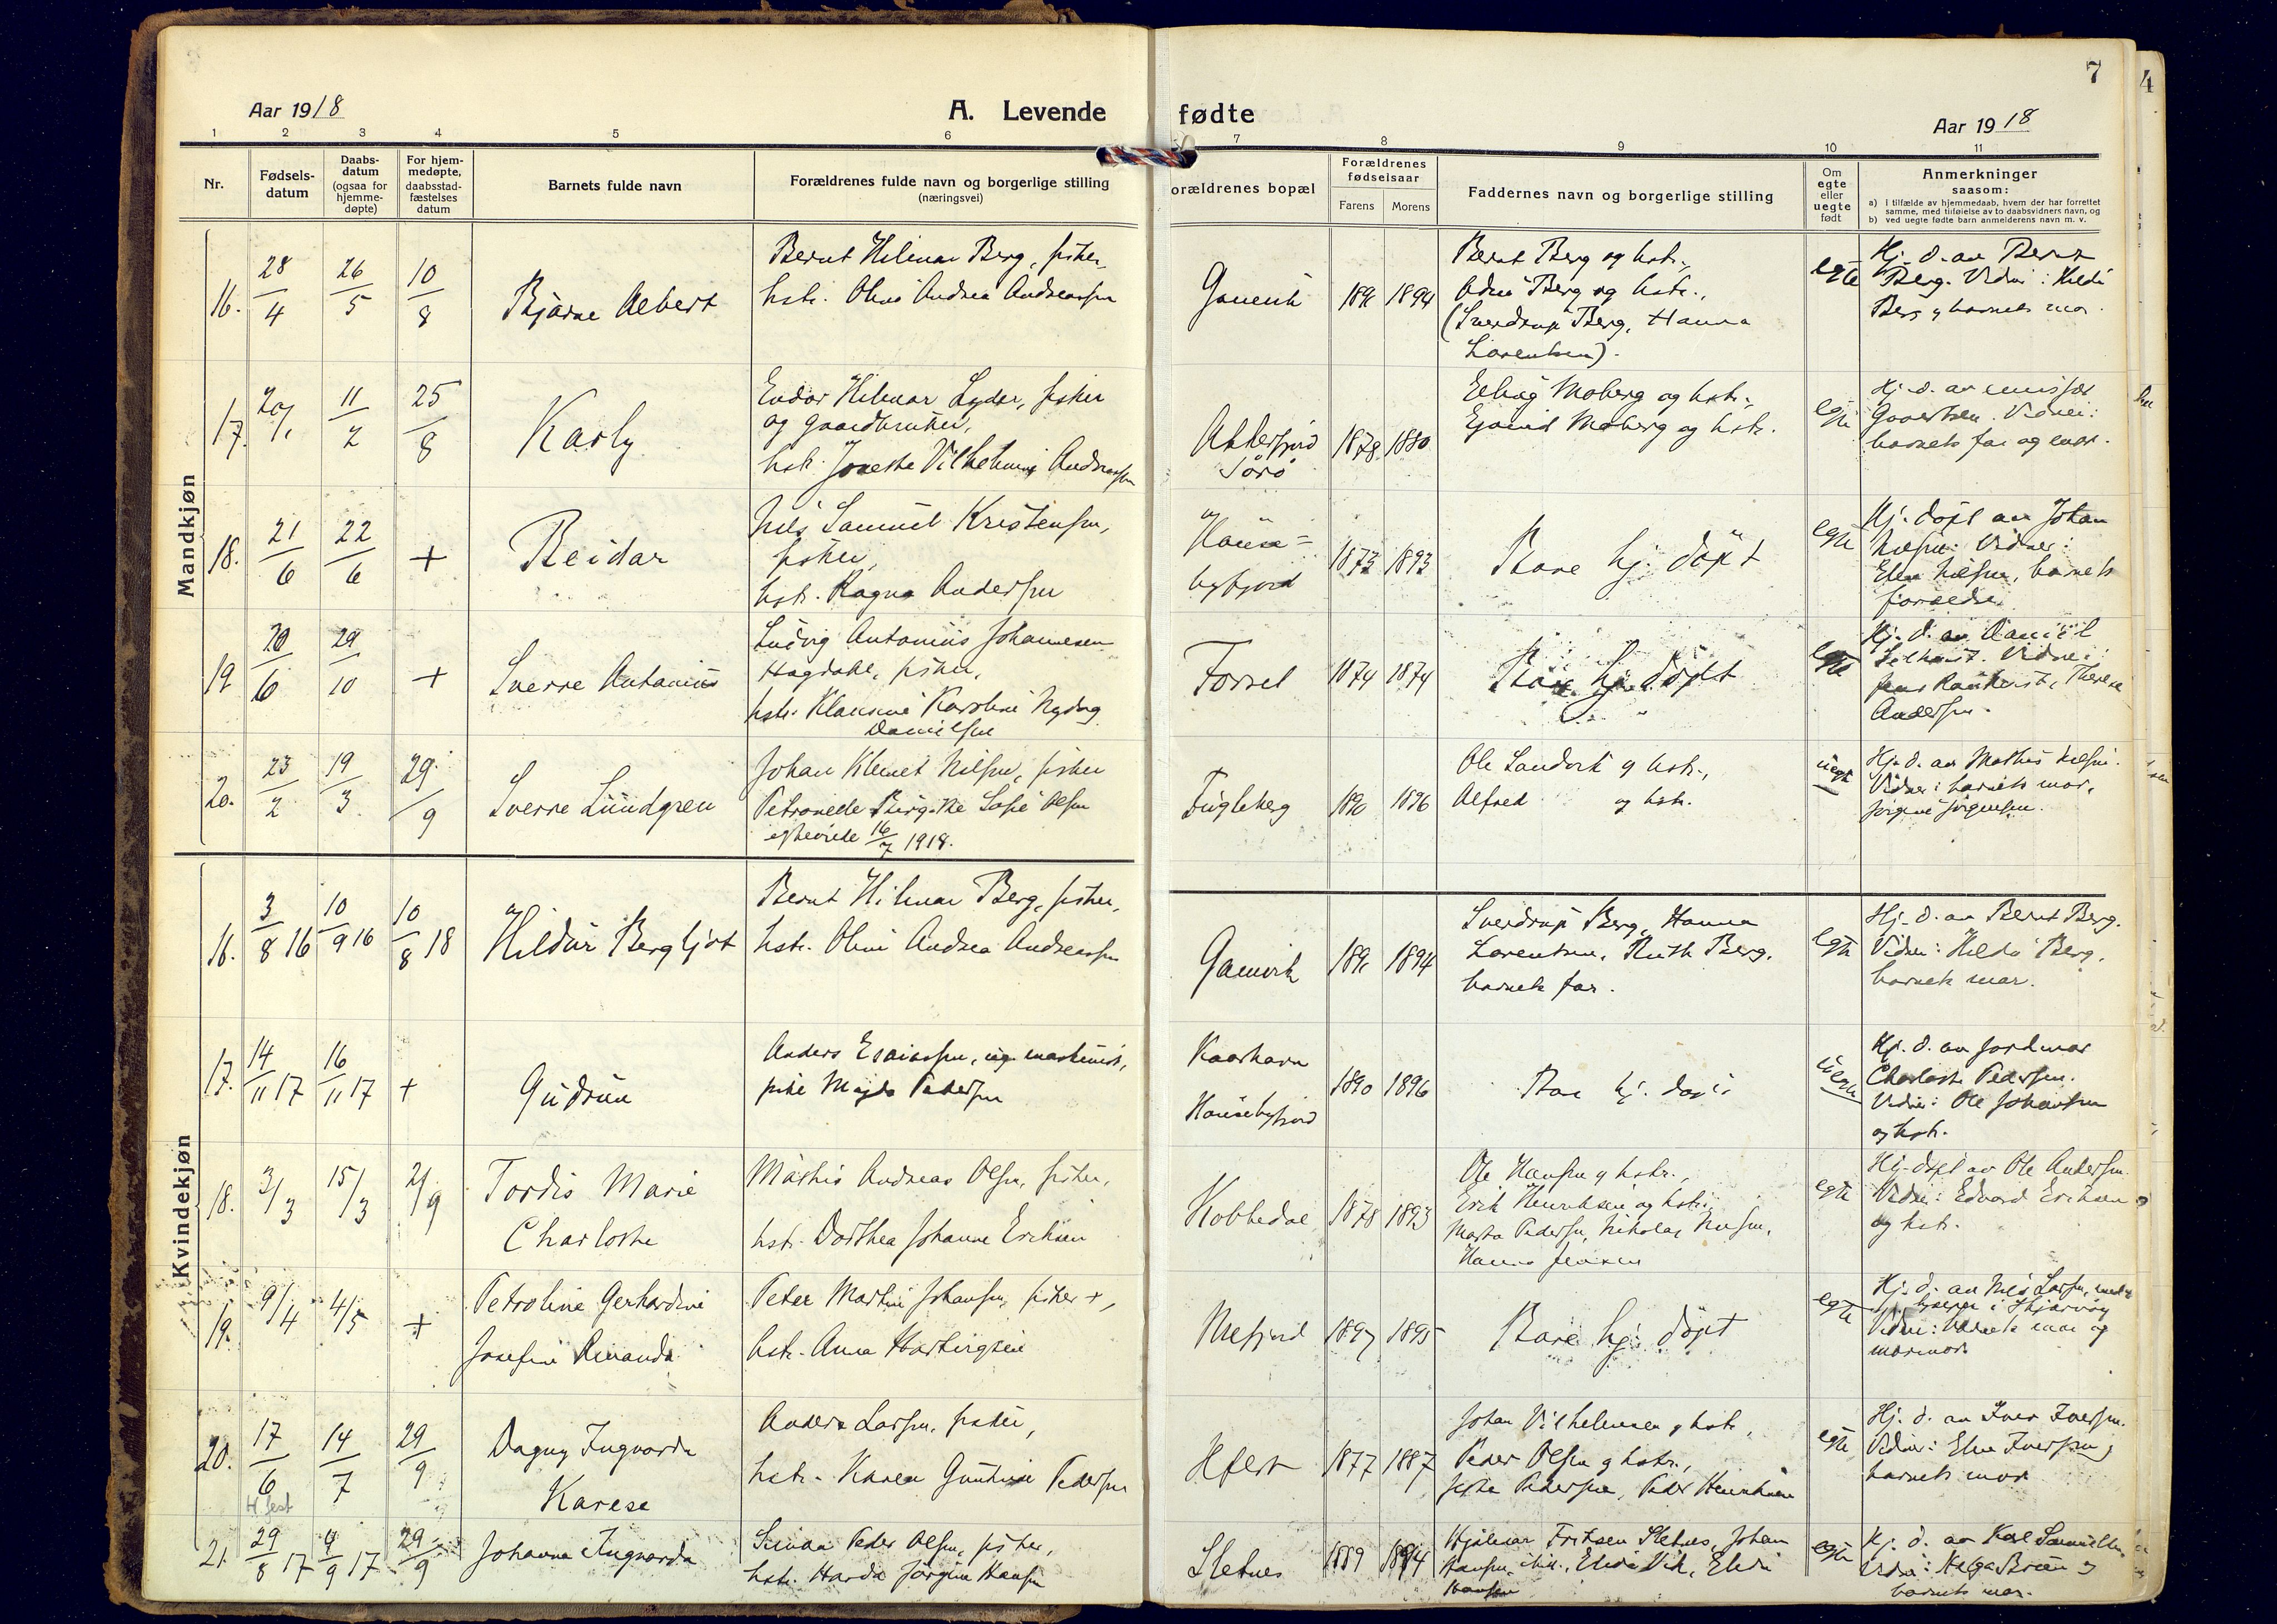 7
4
Aar 1918
A. Levende
fødte
Aar 1918
1 2 3 4 5 6 7 8 9 10 11
Nr.
Fødsels-
datum
Daabs-
datum
(ogsaa for
hjemme-
døpte)
For hjem-
medøpte,
daabsstad-
fæstelses
datum
Barnets fulde navn
Forældrenes fulde navn og borgerlige stilling
(næringsvei)
orældrenes bopæl
Forældrenes
fødselsaar
Farens
Morens
Faddernes navn og borgerlige stilling
Om
egte
eller
uegte
født
Anmerkninger
saasom:
a) i tilfælde av hjemmedaab, hvem der har forrettet
samme, med tilføielse av to daabsvidners navn, og
b) ved uegte fødte barn anmelderens navn m. v.
Mandkjøn
16.
28/4
26/5
10/8
Bjarne Albert
Bernt Hilmar Berg, fisker,
hstr. Oline Andrea Andreassen
Gamvik
1894
Bernt Berg og hstr.,
Berg og hstr.,
(Sverdrup Berg, Hanna
Lorentsen).
egte
Hj. d. av Bernt
Berg. Vidner: Hilda
Berg og barnets mor.
17.
11/2
25/8
Karly
Hilmar
og gaardbruker,
hstr. Vilhelmine Andreassen
Akkerfjord
Sørø
1878 1880
Moberg og hstr.,
Moberg og hstr.
egte
Hj. d. av
Vidner:
barnets far og
18.
21/6
22/6
+
Reidar
Nils Samuel Kristensen,
fisker,
hstr. Ragna Andersen
Hønse=
byfjord
1873 1893
Bare hj. døpt
egte
Hj. døpt av Johan
Nilsen. Vidner:
Nilsen, barnets
forældre.
19
20/6
29/10
+
Sverre Antonius
Ludvig Antonius Johannesen
Hagdahl, fisker,
hstr. Klausine Karoline Nydag
Danielsen
Forsøl
1874 1874
Bare hj. døpt
egte
Hj. d. av Daniel
Vidner:
Jens Therese
Andersen.
20.
23/2
19/3
29/9
Sverre Lundgren
Johan Klemet Nilsen, fisker
Petronelle Sofie Olsen
egteviede 16/7 1918.
Fugleberg
1896
Ole Sandvik og hstr.,
Alfred og hstr.
uegte
Hj. d. av Mathis Nilsen.
Vidner: barnets mor,
Jørgine Jørgensen.
Kvindekjøn
16.
3/8 16
10/9 16
10/8 18
Hildur Bergljot
Bernt Hilmar Berg, fisker,
hstr. Oline Andrea Andreassen
Gamvik
1894
Sverdrup Berg, Hanna
Lorentsen, Ruth Berg,
barnets far.
egte
Hj. d. av Bernt Berg.
Vidner: Hilda Berg,
barnets mor.
17.
14/11 17
16/11 17
+
Gudrun
Anders Esaiassen, ug. maskinist,
pike Magda Pedersen
Kaarhavn
Hønsebyfjord
1890 1896
Bare hj. døpt
uegte
Hj. d. av jordmor
Charlotte Pedersen.
Vidner: Ole Johansen
og hstr.
18.
3/3
15/3
21/9
Tordis Marie
Charlotte
Mathis Andreas Olsen, fisker,
hstr. Dorthea Johanne Eriksen
Kobbedal
1878 1893
Ole Hansen og hstr.,
Erik Henriksen og hstr.,
Marta Pedersen, Nikolai
Hanna Jensen
egte
Hj. døpt av Ole Andersen.
Vidner: Edvard Eriksen
og hstr.
19.
9/4
4/5
+
Petroline Gerhardine
Josefine Amanda
Peter Martin Johansen, fisker +,
hstr. Anna Hartvigsen
Mefjord
1897 1895
Bare hj. døpt
egte
Hj. d. av Nils Larsen,
i Skjervøy
Vidner: barnets mor og
mormor.
20.
17/6
14/7
29/9
H fest
Dagny Ingvarda
Karese
Anders Larsen, fisker,
hstr. Karen Pedersen
1877 1887
Johan Vilhelmsen og hstr.,
Peder Olsen og hstr.,
Pedersen, Peder Henriksen
egte
Hj. d. av Iver Iversen.
Vidner: Iversen og
barnets mor
21.
29/8 17
9/9 17
29/9
Johanna Ingvarda
Peder Olsen, fisker,
hstr. Harda Jørgine Hansen
Sletnes
1889 1894
Hjalmar Fritsen Sletnes, Johan
Hansen,
Hansen
egte
Hj. d. av Karl
Vidner: Helga og
barnets mor.